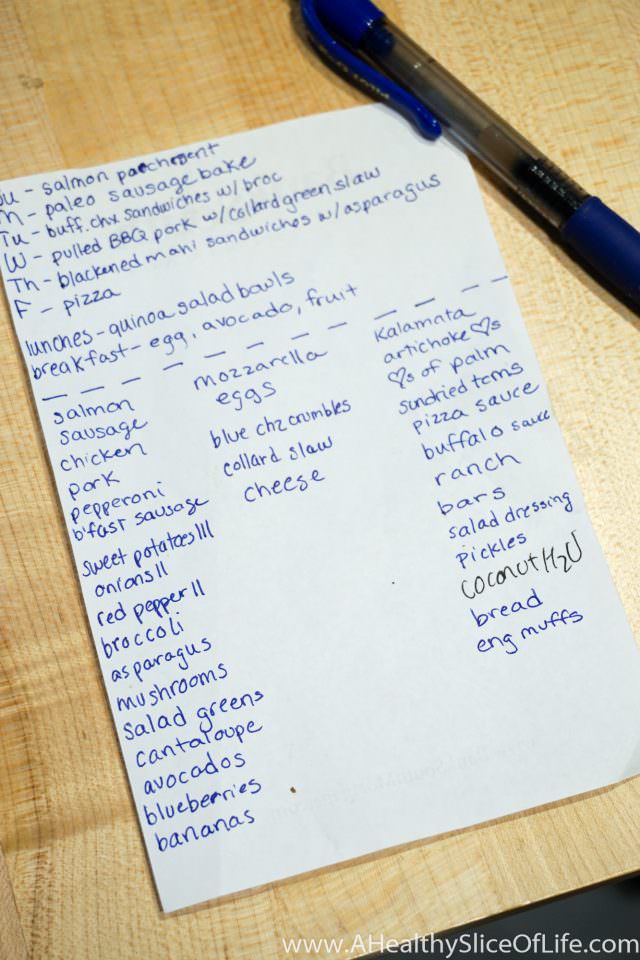 Su - salmon parchment
M - paleo sausage bake
Tu - buff. chx sandwiches w/ broc
W - pulled BBQ pork w/ collard green slaw
Th - blackened mahi sandwiches w/ asparagus
F - pizza
lunches - quinoa salad bowls
breakfast - egg, avocado, fruit
salmon
sausage
chicken
pork
pepperoni
b'fast sausage
sweet potatoes III
onions II
red pepper II
broccoli
asparagus
mushrooms
salad greens
cantaloupe
avocados
blueberries
bananas
mozzarella
eggs
blue chz crumbles
collard slaw
cheese
Kalamata
artichoke ♡s
♡s of palm
sundried toms
pizza sauce
buffalo sauce
ranch
bars
salad dressing
pickles
coconut H2O
bread
eng muffs
www.AHealthySliceOfLife.com